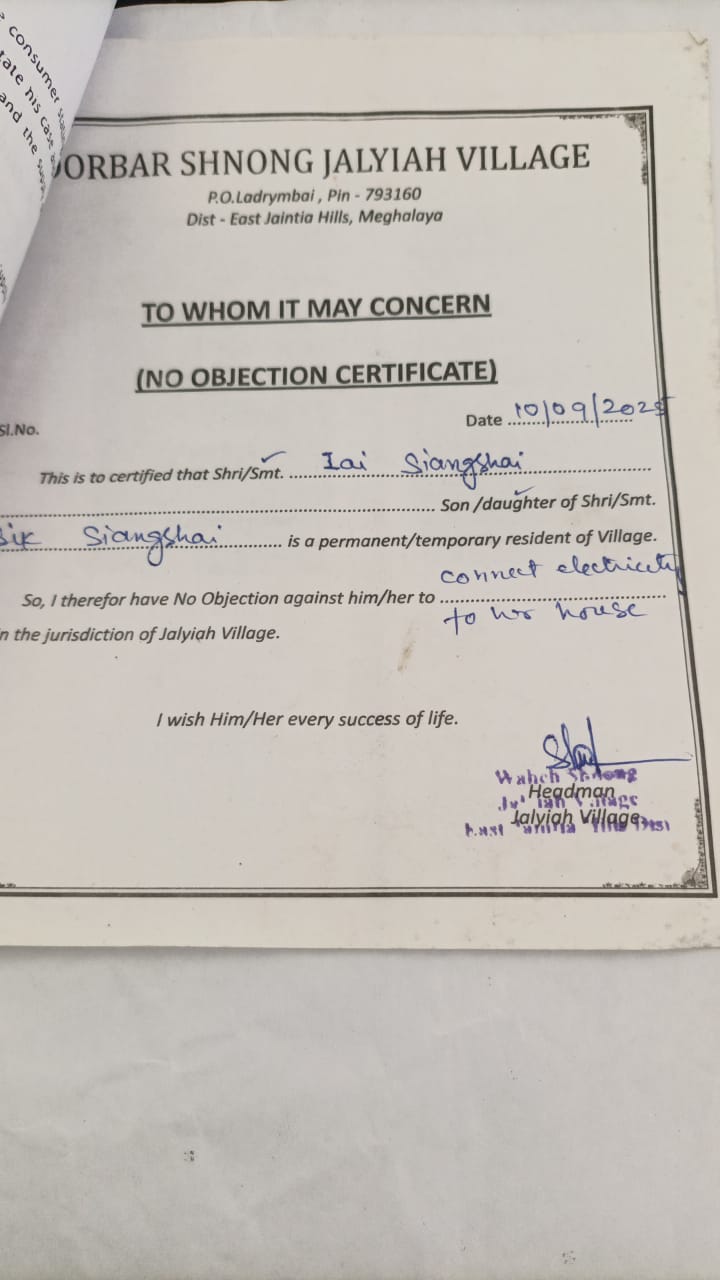 consumer
tate his case
and the
DORBAR SHNONG JALYIAH VILLAGE
P.O.Ladrymbai , Pin - 793160
Dist - East Jaintia Hills, Meghalaya
TO WHOM IT MAY CONCERN
(NO OBJECTION CERTIFICATE)
Sl.No.
Date 10/09/2025
This is to certified that Shri/Smt. Iai Siangshai
Son /daughter of Shri/Smt.
Siangshai is a permanent/temporary resident of Village.
connect electricity
So, I therefor have No Objection against him/her to
to hr house
in the jurisdiction of Jalyiah Village.
I wish Him/Her every success of life.
Waheh Shnong
Headman
Jalyiah Village